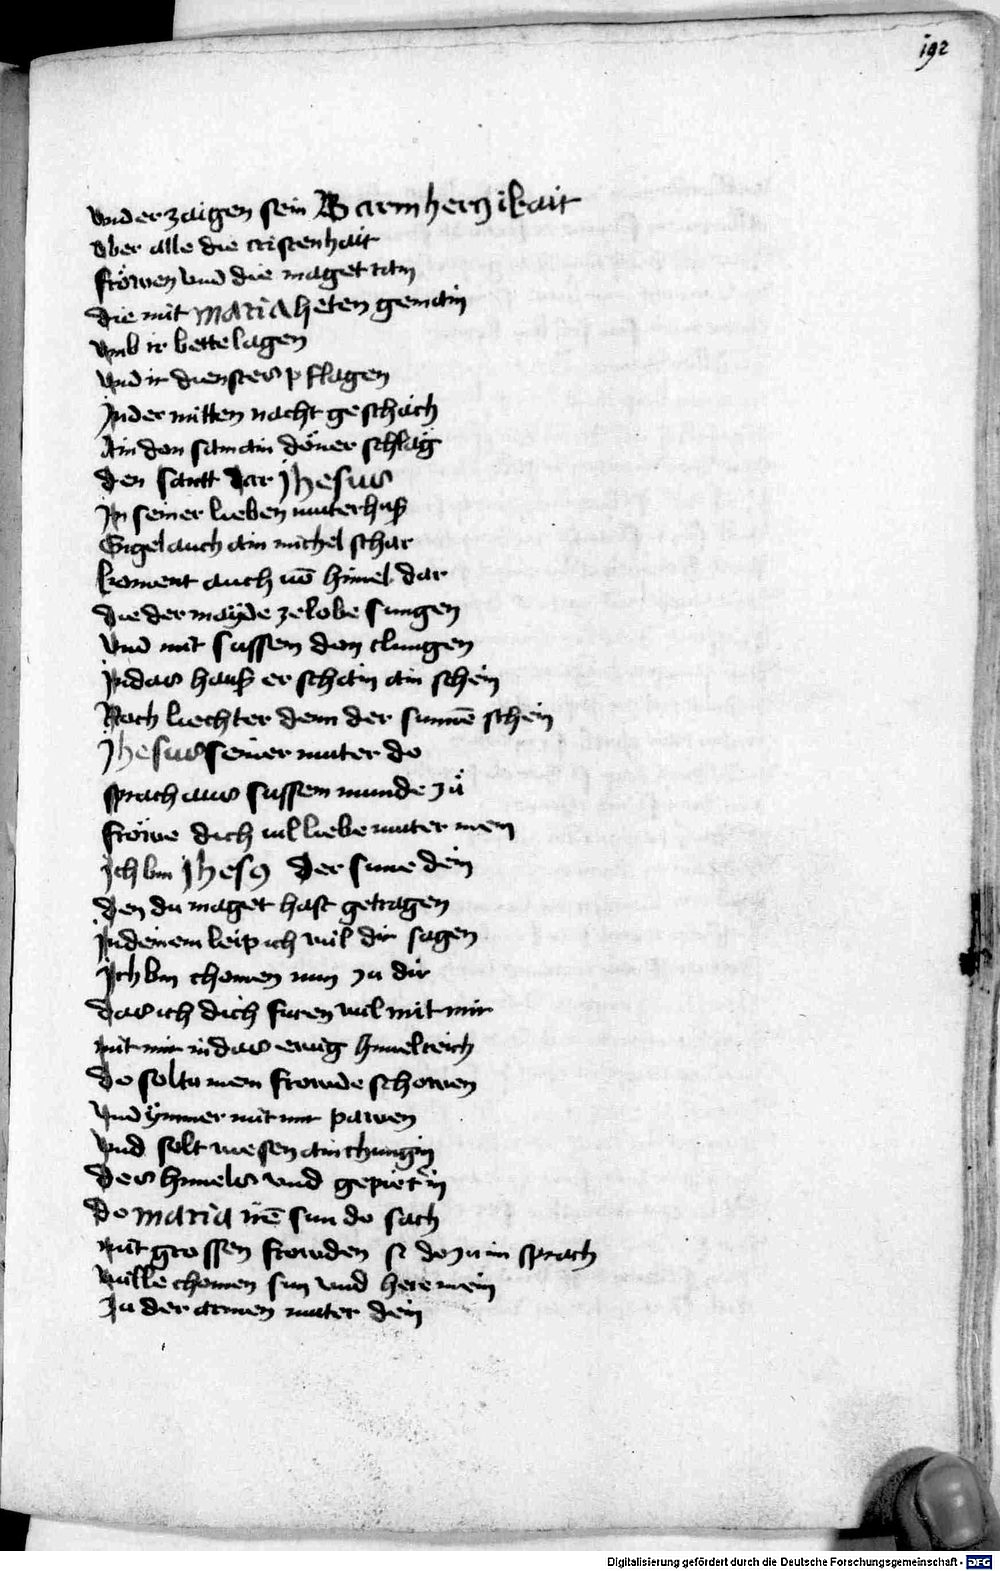 192
vnd erzaigen sein Barmherczikait
vber alle die cristenhait
fröwen vnd die maget rain
die mit maria heten gemain
vmb ir bette lagen
vnd ir dienstes pflagen
Jn der mitten nacht geschach
Ain don sam ain döner schlag
den santt dar jhesus
Jn seiner lieben muter huß
Engel auch ain michel schar
koment auch vō himel dar
die der mayde ze lobe sungen
vnd mit sussen don clungen
Jn das hauß er schain ain schein
Noch liechter denn der sunnē schein
Jhesus seiner muter do
sprach aus sussem munde zů
fröwe dich vil liebe muter mein
Jch bin Jhesꝰ der sune dein
den du maget hast getragen
Jn deinem leip ich wil dir sagen
Jch bin chomen nun zu dir
das ich dich furen wil mit mir
mit mir in das ewig himelreich
do soltu mein frowde schowen
vnd ymmer mit mir pawen
vnd solt wesen ain chungin
des himels vnd gepieterin
do maria irē sun do sach
mit grossen frowden si do zu im sprach
wille chomen sun vnd here mein
Zu der armen muter dein
Digitalisierung gefördert durch die Deutsche Forschungsgemeinschaft - DFG